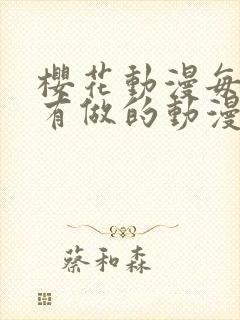 櫻花動漫每
有做的動漫
蔡和森